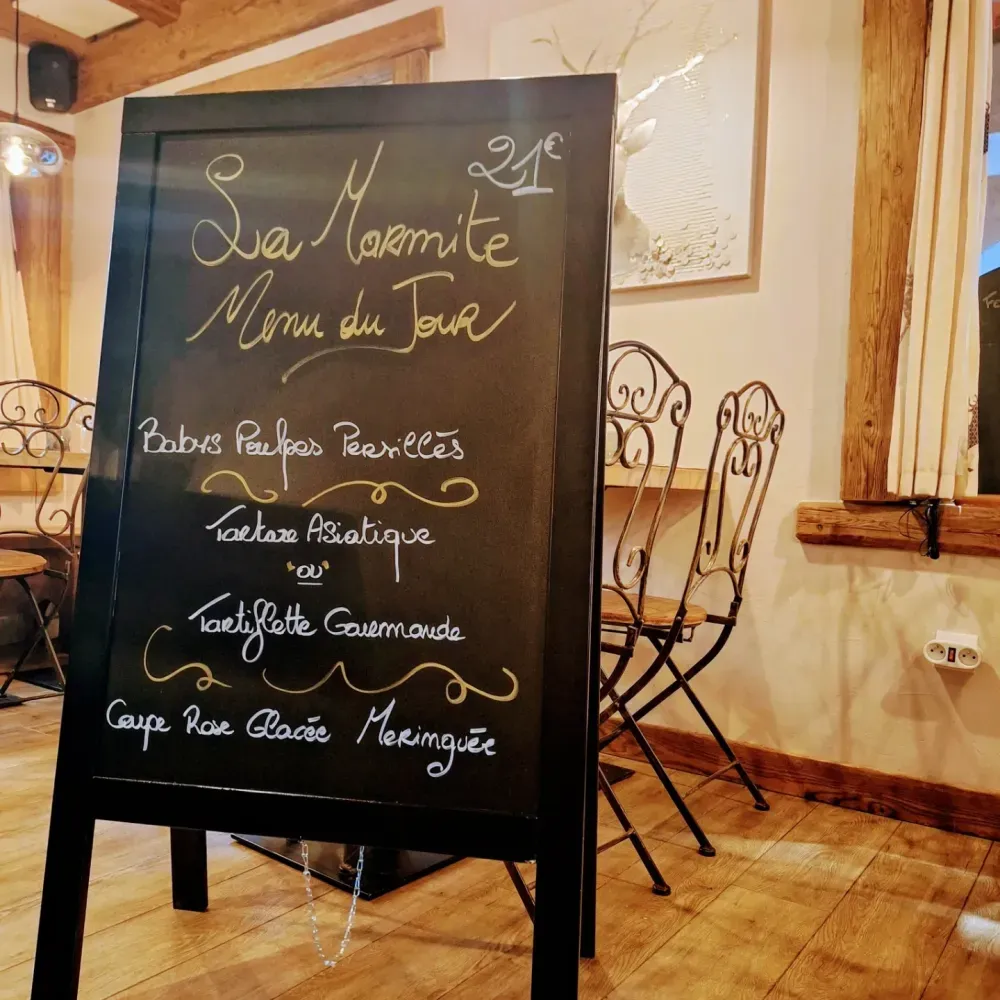 21€
La Marmite
Menu du Jour
Babys Poulpes Persillés
Tartare Asiatique
"ou"
Tartiflette Gourmande
Coupe Rose Glacée Meringuée